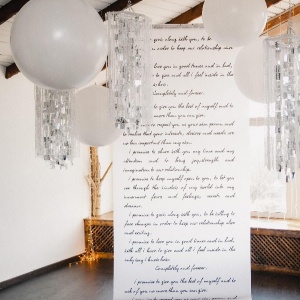 I promise to grow along with you, to be
in order to keep our relationship alive
love you in good times and in bad,
to give and all I feel inside in the
Completely and forever.
to give you the best of myself and to
more than you can give.
respect you as your own person and
to realize that your interests, desires and needs are
no less important than my own.
I promise to share with you my time and my
attention and to bring joy, strength and
imagination to our relationship.
I promise to keep myself open to you, to let you
see through the window of my world into my
innermost fears and feelings, secrets and
dreams.
I promise to grow along with you, to be willing to
face changes in order to keep our relationship alive
and exciting.
I promise to love you in good times and in bad,
with all I have to give and all I feel inside in the
only way I know how.
Completely and forever.
I promise to give you the best of myself and to
ask of you no more than you can give.